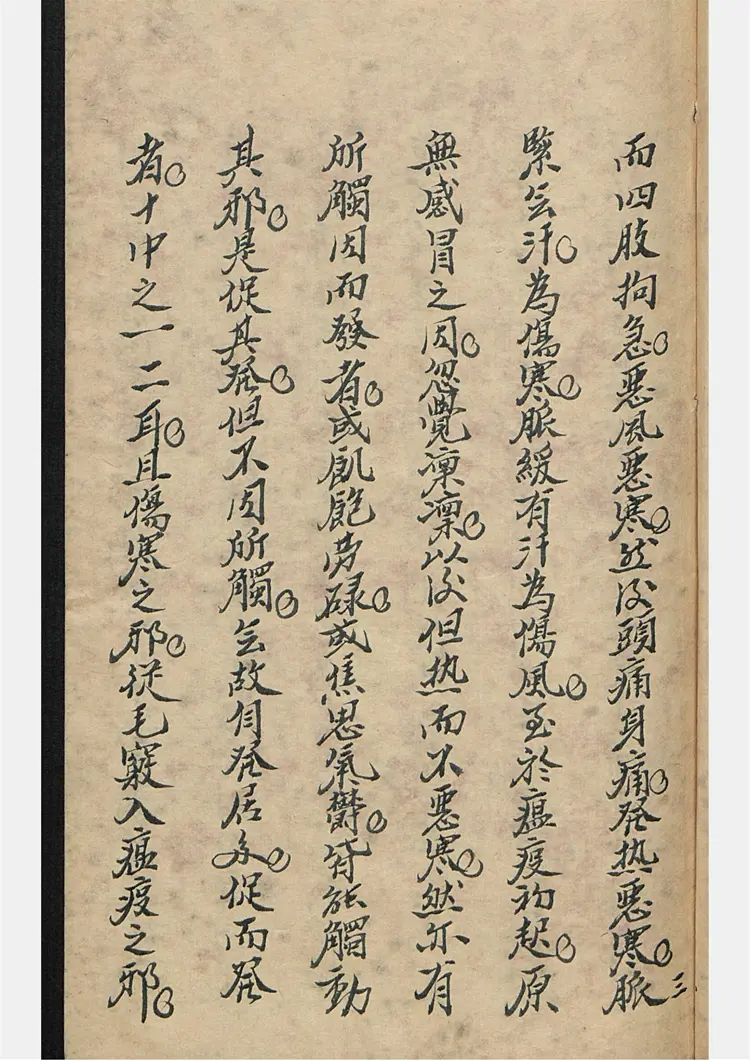 而四肢拘急。惡風惡寒。然後頭痛身痛。発热惡寒。脈
緊无汗。為傷寒。脈緩有汗為傷風。至於瘟疫初起。原
無感冒之因。忽覺凜凜。以後但热而不惡寒。然亦有
所觸因而發者。或飢飽劳碌。或焦思氣鬱。皆能觸動
其邪。是促其発。但不因所觸。无故自発居多。促而発
者。十中之一二耳。且傷寒之邪。從毛竅入瘟疫之邪。
三